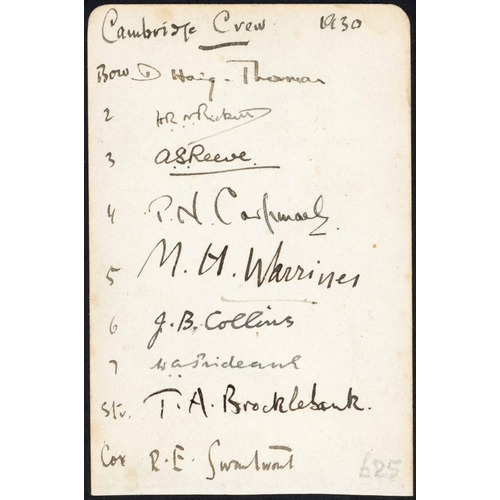 Cambridge Crew 1930
Bow D Haig-Thomas
2 H.R.N. Rickett
3 A.S. Reeve.
4 P. N. Carpmael
5 M. H. Warriner
6 J.B. Collins
7 W A Prideaux
Str. T. A. Brocklebank.
Cox R. E. Swartwout
£25